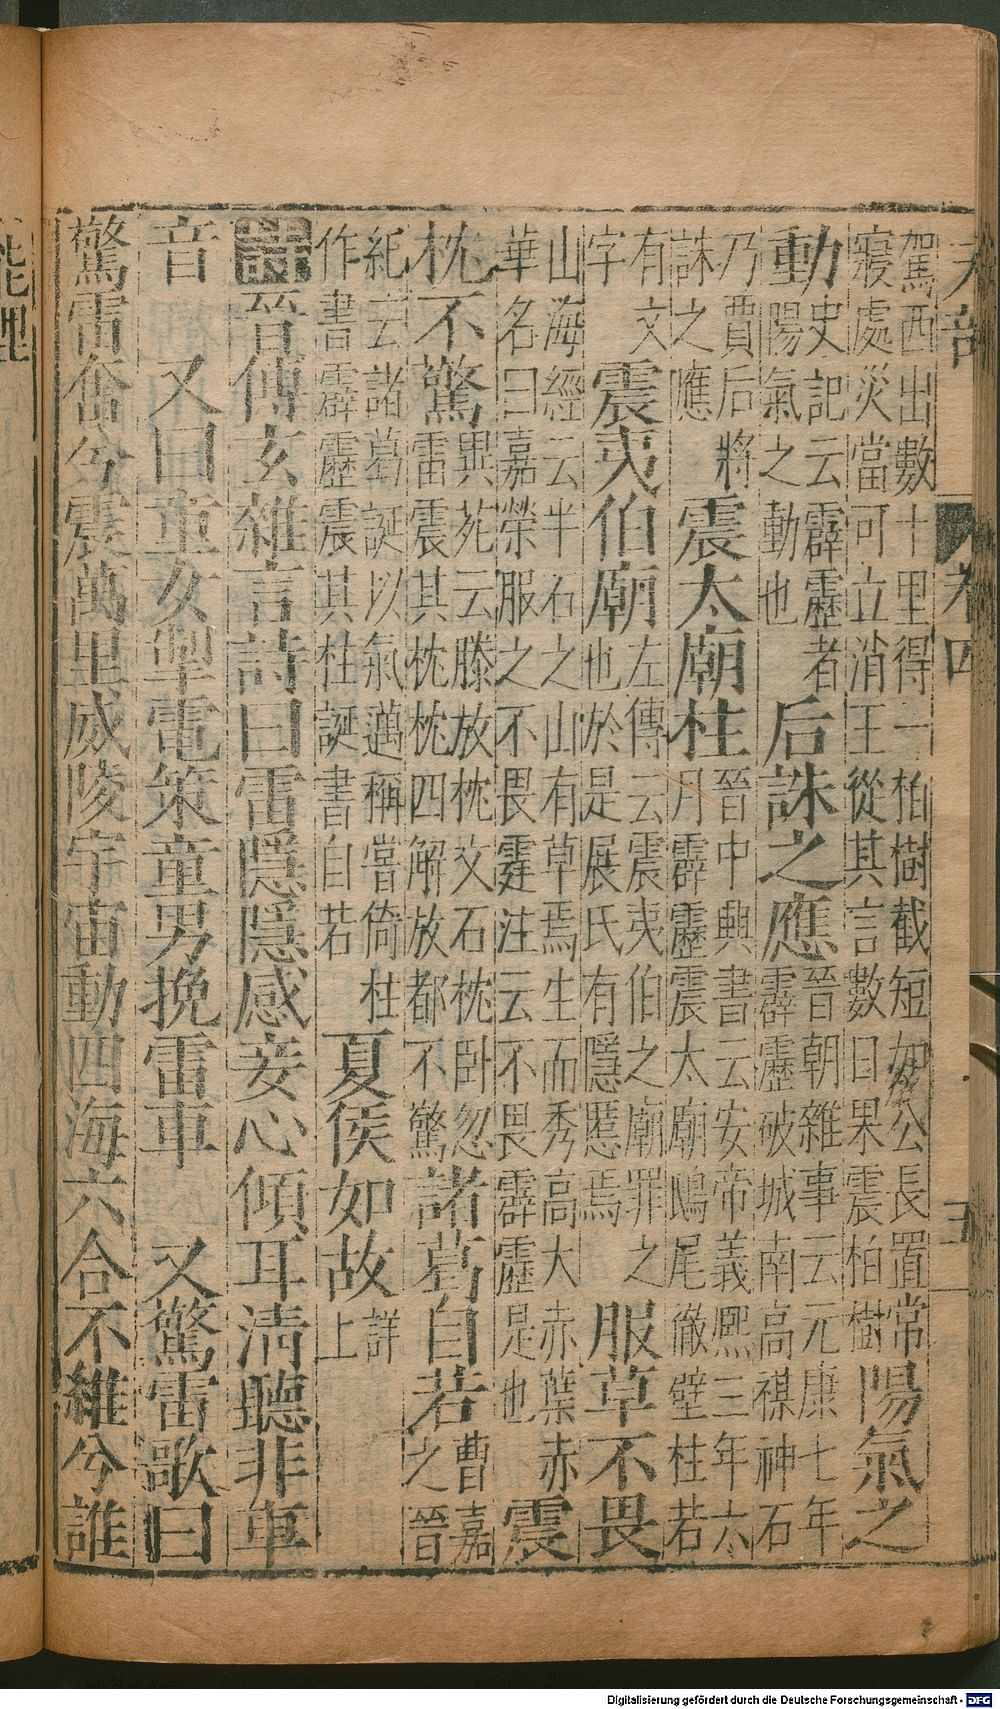 天部 卷四
駕西出數十里得一柏樹截短如公長置常寢處災當可立消王從其言數日果震柏樹陽氣之
動史記云霹靂者陽氣之動也后誅之應晉朝雜事云元康七年霹靂破城南高禖神石
乃賈后將誅之應震太廟柱晉中興書云安帝義熙三年六月霹靂震太廟鴟尾徹壁柱若
有文字震夷伯廟左傳云震夷伯之廟罪之也於是展氏有隱慝焉服草不畏
山海經云半石之山有草焉生而秀高大赤葉赤華名曰嘉榮服之不畏霆注云不畏霹靂是也震
枕不驚異苑云滕放枕文石枕卧忽雷震其枕枕四解放都不驚諸葛自若曹嘉之晉
紀云諸葛誕以氣邁稱嘗倚柱作書霹靂震其柱誕書自若夏侯如故詳上
詩晉傅玄雜言詩曰雷隱隱感妾心傾耳淸聽非車
音 又曰童女掣電策童男挽雷車 又驚雷歌曰
驚雷奮兮震萬里威陵宇宙動四海六合不維兮誰
Digitalisierung gefördert durch die Deutsche Forschungsgemeinschaft - DFG